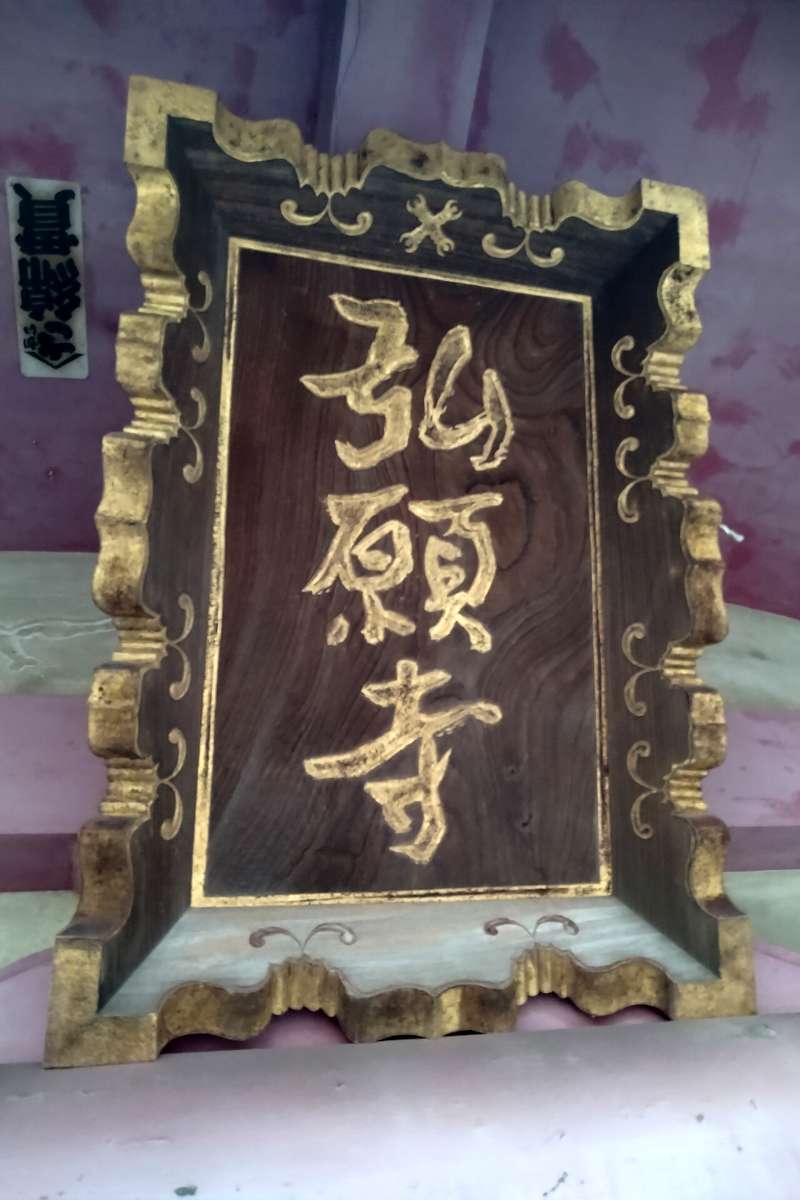 弘願寺